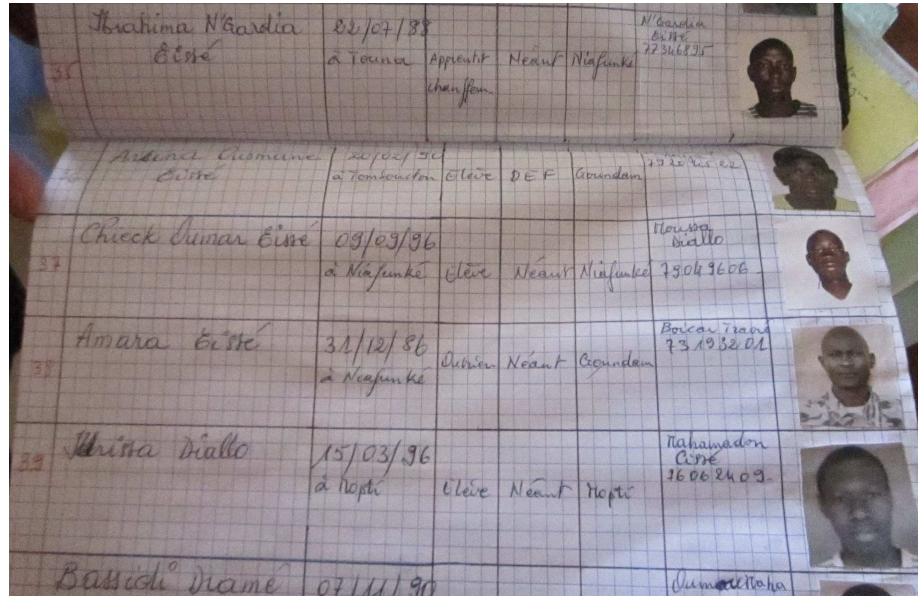 35 Ibrahima N'Gardia Cissé 22/07/88 à Touna Apprentit chauffeur Néant Niafunké N'Gardia Cissé 77346895
Ousmane Cissé à Tombouctou Elève DEF Goundam
37 Chieck Oumar Cissé 09/09/96 à Niafunké Elève Néant Niafunké Moussa Diallo 79049606
38 Amara Cissé 31/12/86 à Niafunké Ouvrier Néant Goundam 73193201
39 Diallo 15/03/96 à Mopti Elève Néant Mopti Mahamadou Cissé 76062409
Bassidi Dramé 07/11/90